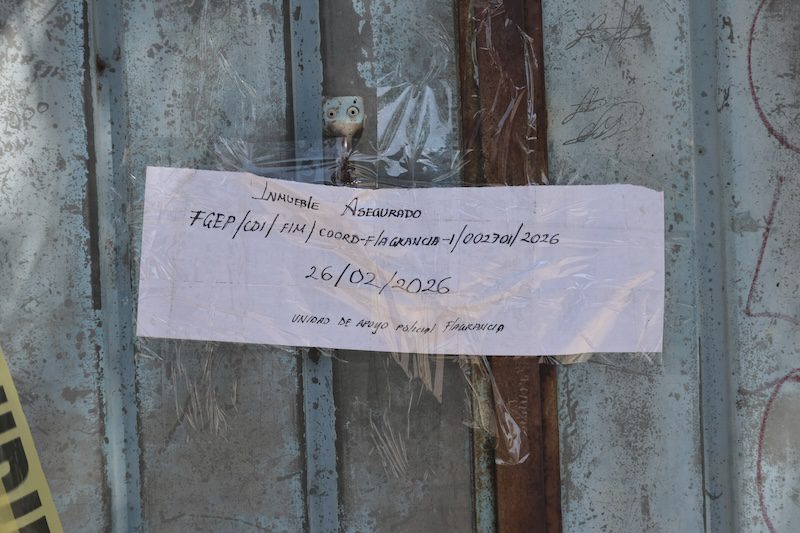 INMUEBLE ASEGURADO
FGEP/CDI/FIM/COORD-FLAGRANCIA-1/002701/2026
26/02/2026
UNIDAD DE APOYO POLICIAL FLAGRANCIA